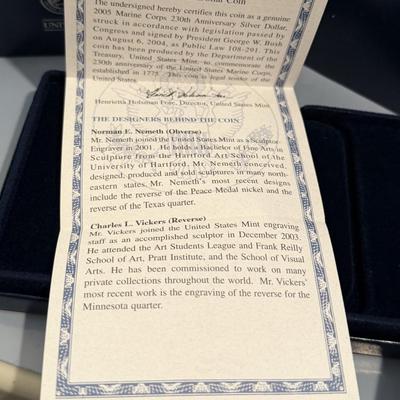 Coin
The undersigned hereby certifies this coin as a genuine
2005 Marine Corps 230th Anniversary Silver Dollar,
struck in accordance with legislation passed by
Congress and signed by President George W. Bush
on August 6, 2004, as Public Law 108-291. This
coin has been produced by the Department of the
Treasury, United States Mint, to commemorate the
230th anniversary of the United States Marine Corps,
established in 1775. This coin is legal tender of the
United States.
Henrietta Holsman Fore, Director, United States Mint
THE DESIGNERS BEHIND THE COIN
Norman E. Nemeth (Obverse)
Mr. Nemeth joined the United States Mint as a Sculptor-
Engraver in 2001. He holds a Bachelor of Fine Arts in
Sculpture from the Hartford Art School of the
University of Hartford. Mr. Nemeth conceived,
designed, produced and sold sculptures in many north-
eastern states. Mr. Nemeth's most recent designs
include the reverse of the Peace Medal nickel and the
reverse of the Texas quarter.
Charles L. Vickers (Reverse)
Mr. Vickers joined the United States Mint engraving
staff as an accomplished sculptor in December 2003.
He attended the Art Students League and Frank Reilly
School of Art, Pratt Institute, and the School of Visual
Arts. He has been commissioned to work on many
private collections throughout the world. Mr. Vickers'
most recent work is the engraving of the reverse for the
Minnesota quarter.